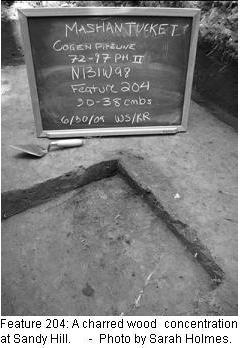 MASHANTUCKET
COGEN PIPELINE
72-97 PH II
N131W98
Feature 204
30-38 cmbs
6/30/09 WS/KR
Feature 204: A charred wood concentration
at Sandy Hill. - Photo by Sarah Holmes.